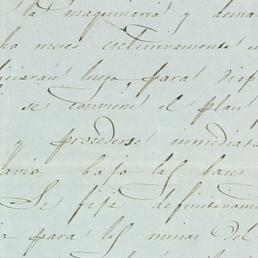 la maquinaria y dema
ho mas esclusivamente e
iciarán luego, para disp
se conviene el plan
y procederse inmediata
bajo las bases
Se fije definitivam
para las minas del